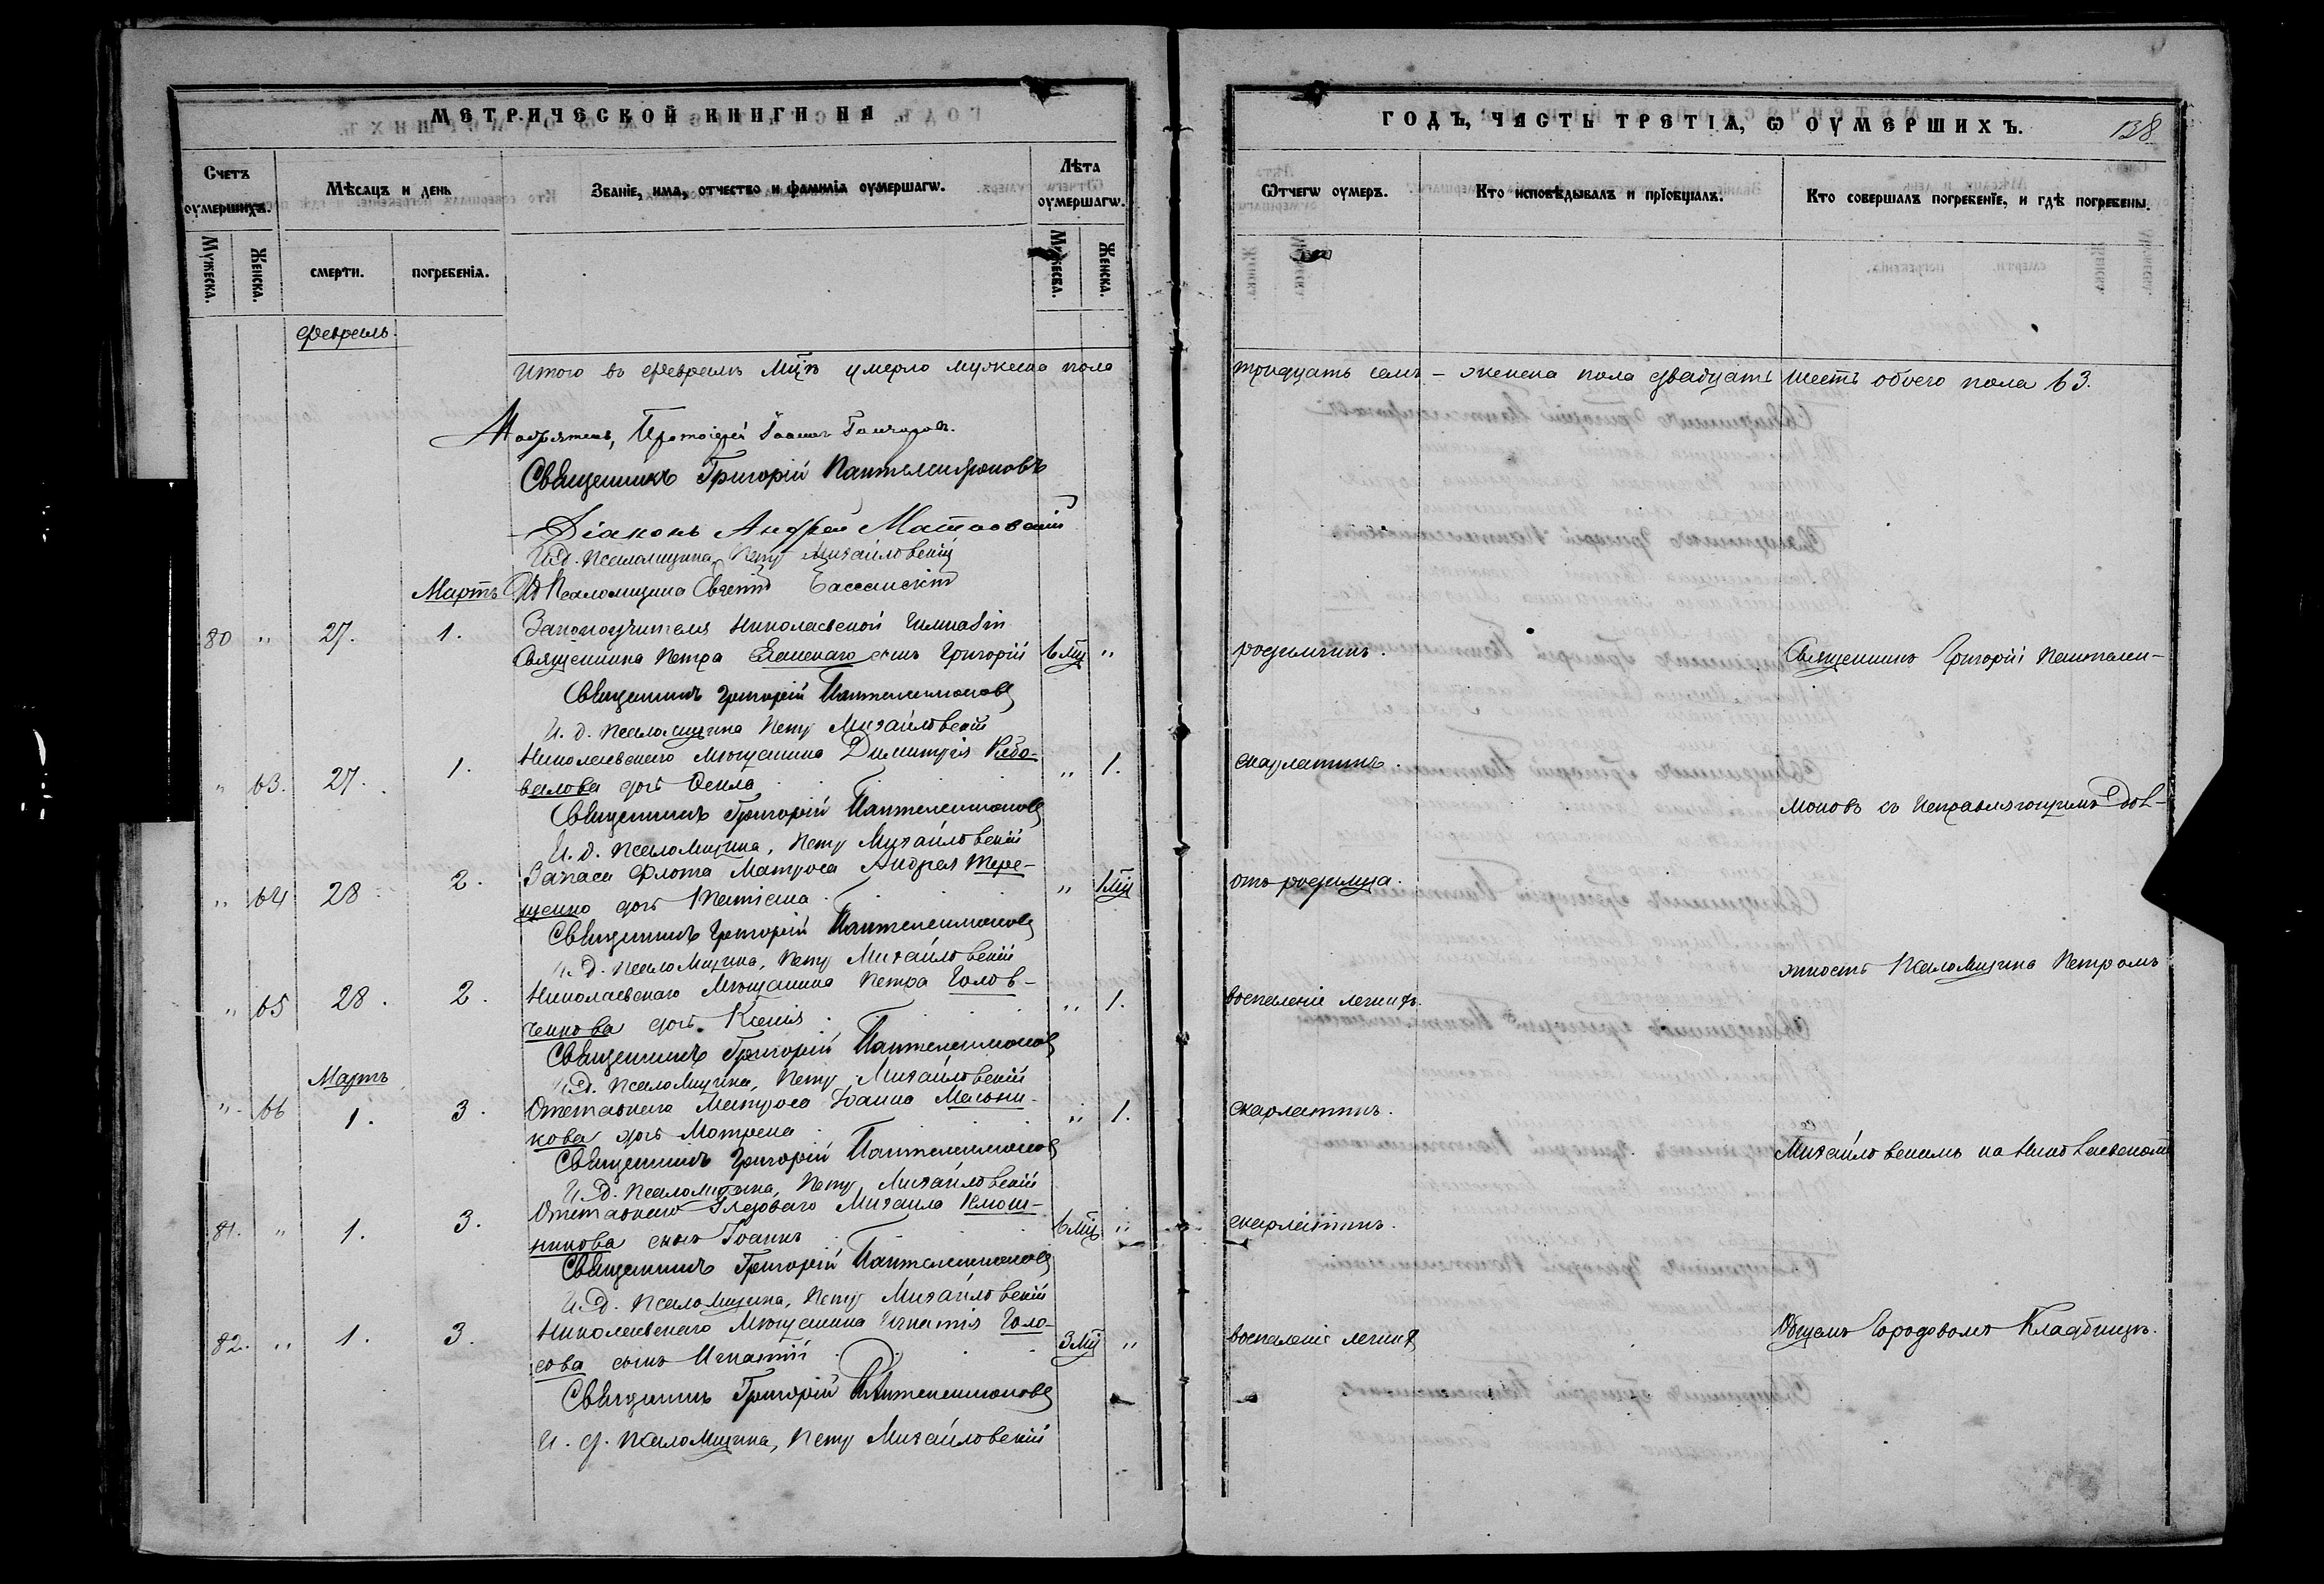 МЕТРИЧЕСКОЙ КНИГИ НА
ГОДЪ, ЧАСТЬ ТРЕТІЯ, Ѡ ОУМЕРШИХЪ.
138
Счетъ оумершихъ.
Мѣсяцъ и день
Званіе, имя, отчество и фамилія оумершагѡ.
Лѣта оумершагѡ.
Ѿтчегѡ оумеръ.
Кто исповѣдывалъ и пріобщалъ.
Кто совершалъ погребеніе, и гдѣ погребены.
Мужеска.
Женска.
смерти.
погребенія.
Мужеска.
Женска.
Февраль.
Итого въ Февралѣ мцѣ умерло мужеска пола тридцать семь – женска пола двадцать шесть обоего пола 63.
Протоіерей Іоаннъ
Священникъ Григорій Пантелеимоновъ
Діаконъ Андрей
И.д. псаломщика Петръ Михайловскій
Мартъ
И.д. Псаломщика Евгеній
80 " 27. 1. Законоучителя Николаевской Гимназіи
Священника Петра Еланскаго сынъ Григорій 6 мц " родимчикъ.
Священникъ Григорій Пантелеи-
Священникъ Григорій Пантелеимоновъ
И. д. псаломщика Петръ Михайловскій
" 63. 27. 1. Николаевскаго мѣщанина Димитрія
валова дочь " 1. скарлатинъ.
Священникъ Григорій Пантелеимоновъ
моновъ съ исправляющимъ дол-
И. д. псаломщика, Петръ Михайловскій
" 64 28 2. Запаса флота матроса Андрея Тере-
щенко дочь " 1 мц отъ родимца.
Священникъ Григорій Пантелеимоновъ
И. д. псаломщика, Петръ Михайловскій
жность Псаломщика Петромъ
" 65 28. 2. Николаевскаго мѣщанина Петра Голов-
ченкова дочь Ксенія " 1. воспаленіе легкихъ.
Священникъ Григорій Пантелеимоновъ
Мартъ
И.д. псаломщика, Петръ Михайловскій
" 66 1. 3. Отставнаго матроса Іоанна
кова дочь Матрена " 1. скарлатинъ.
Священникъ Григорій Пантелеимоновъ
Михайловскимъ на Николаевскомъ
И.д. псаломщика, Петръ Михайловскій
81. " 1. 3. Отставнаго рядоваго Михаила Ключ-
никова сынъ Іоаннъ 6 мц " скарлатинъ.
Священникъ Григорій Пантелеимоновъ
И.д. псаломщика, Петръ Михайловскій
82. " 1. 3. Николаевскаго мѣщанина Игнатія Голо-
сова сынъ Игнатій 3 мц " воспаленіе легких
Общемъ Городовомъ Кладбищѣ.
Священникъ Григорій Пантелеимоновъ
И. д. псаломщика, Петръ Михайловскій